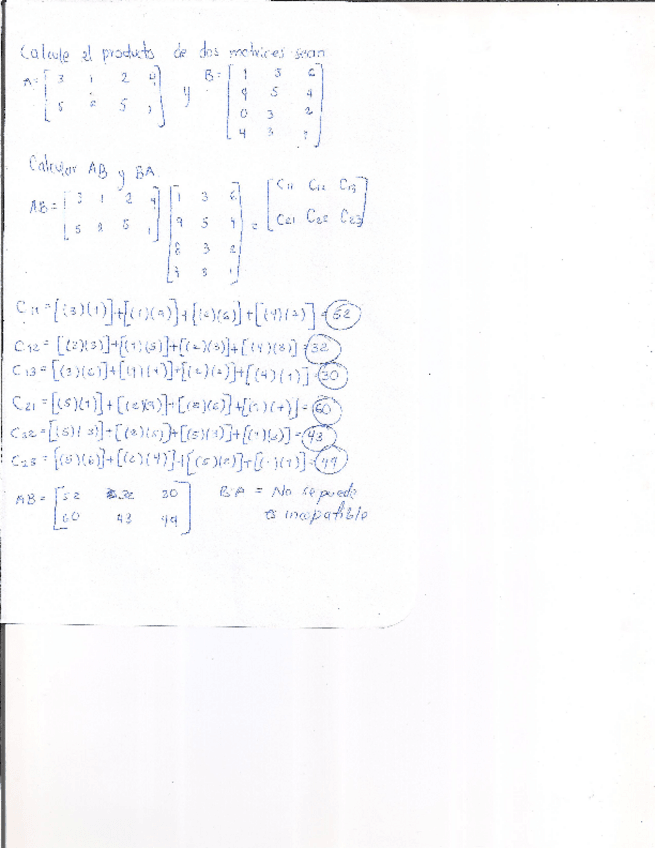 Calcule el producto de dos matrices sean
A = [ 3 1 2 4
5 2 5 1 ] y B = [ 1 3 6
9 5 4
0 3 2
4 3 1 ]
Calcular AB y BA
AB = [ 3 1 2 4
5 2 5 1 ] [ 1 3 6
9 5 4
6 3 2
7 3 1 ] = [ C11 C12 C13
C21 C22 C23 ]
C11 = [(3)(1)]+[(1)(9)]+[(2)(6)]+[(4)(7)] = 52
C12 = [(3)(3)]+[(1)(5)]+[(2)(3)]+[(4)(3)] = 32
C13 = [(3)(6)]+[(1)(4)]+[(2)(2)]+[(4)(1)] = 30
C21 = [(5)(1)]+[(2)(9)]+[(5)(6)]+[(1)(7)] = 60
C22 = [(5)(3)]+[(2)(5)]+[(5)(3)]+[(1)(3)] = 43
C23 = [(5)(6)]+[(2)(4)]+[(5)(2)]+[(1)(1)] = 49
AB = [ 52 32 30
60 43 49 ] BA = No se puede
es incopatible